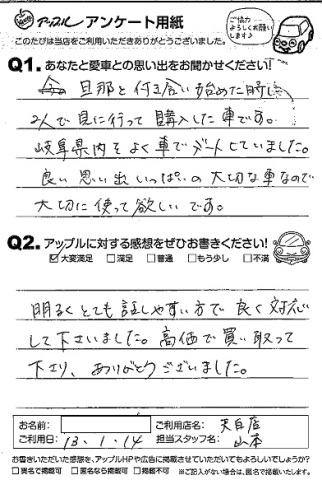 アップル アンケート用紙
ご協力
よろしくお願い
します♪
このたびは当店をご利用いただきありがとうございました。
Q1. あなたと愛車との思い出をお聞かせください!
旦那と付き合い始めた時に
2人で見に行って購入した車です。
岐阜県内をよく車でデートしていました。
良い思い出いっぱいの大切な車なので
大切に使って欲しいです。
Q2. アップルに対する感想をぜひお書きください!
☑大変満足 □満足 □普通 □もう少し □不満
明るくとても話しやすい方で良く対応
して下さいました。高価で買い取って
下さり、ありがとうございました。
お名前: ご利用店名: 天白店
ご利用日: 13.1.14 担当スタッフ名: 山本
お書きいただいた感想を、アップルHPや広告に掲載させていただいてもよろしいでしょうか?
□実名で掲載可 □匿名なら掲載可 □掲載不可 ※ご記入がない場合は、匿名で掲載いたします。